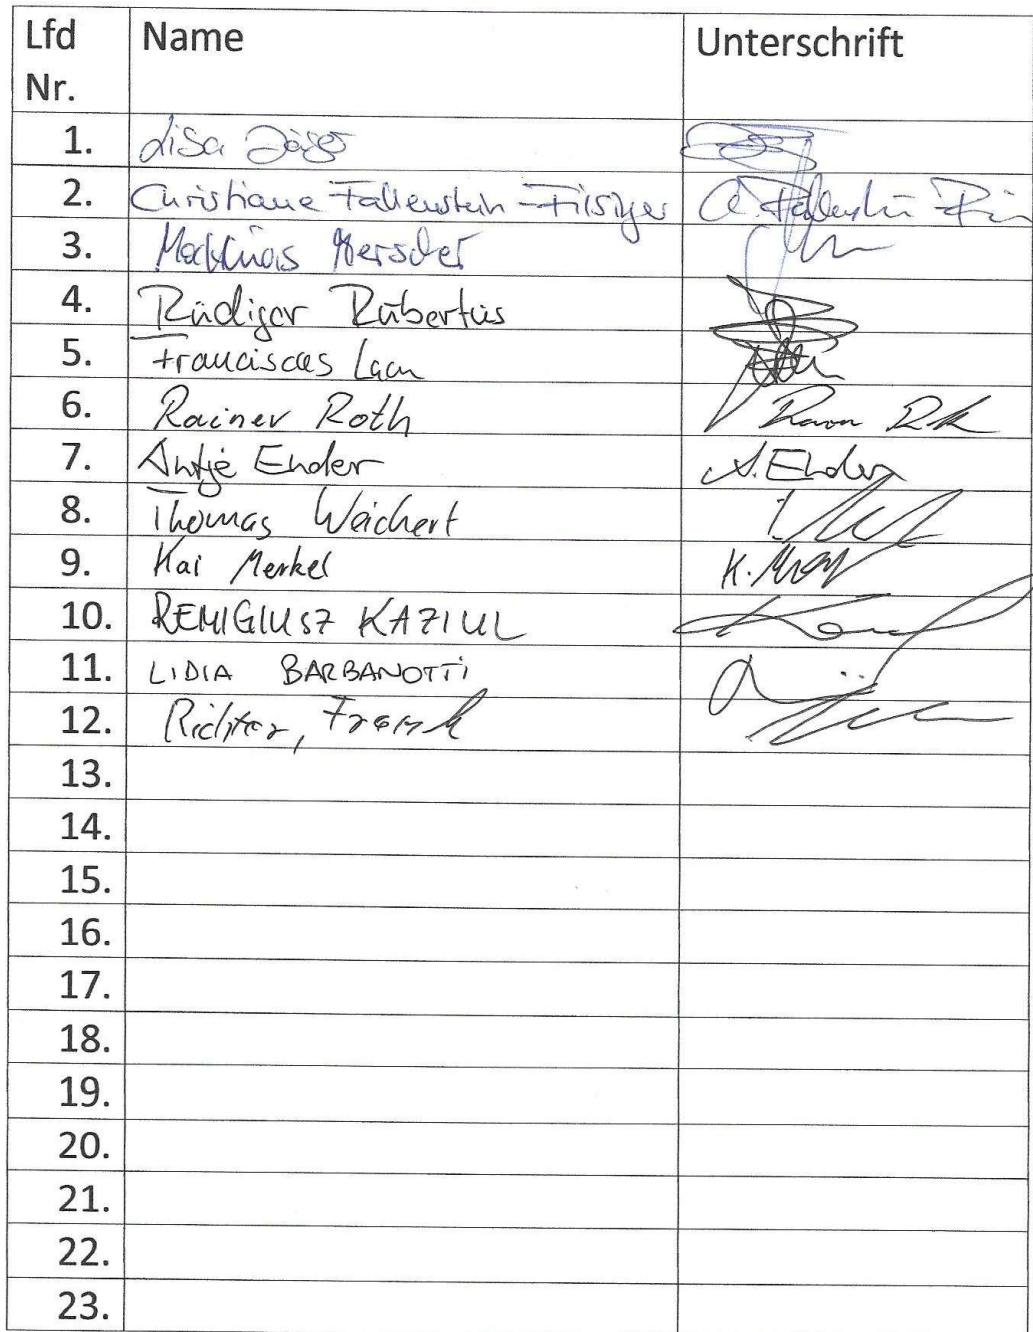 Lfd Nr. Name Unterschrift
1. Lisa Jäger
2. Christiane Fallenstein-Filsinger
3. Matthias Merscher
4. Rüdiger Rubertus
5.
6. Rainer Roth
7. Antje Ender A. Ender
8. Thomas Weichert
9. Kai Merkel
10. REMIGIUSZ KAZIUL
11. LIDIA BARBANOTTI
12. Richter, Frank
13.
14.
15.
16.
17.
18.
19.
20.
21.
22.
23.